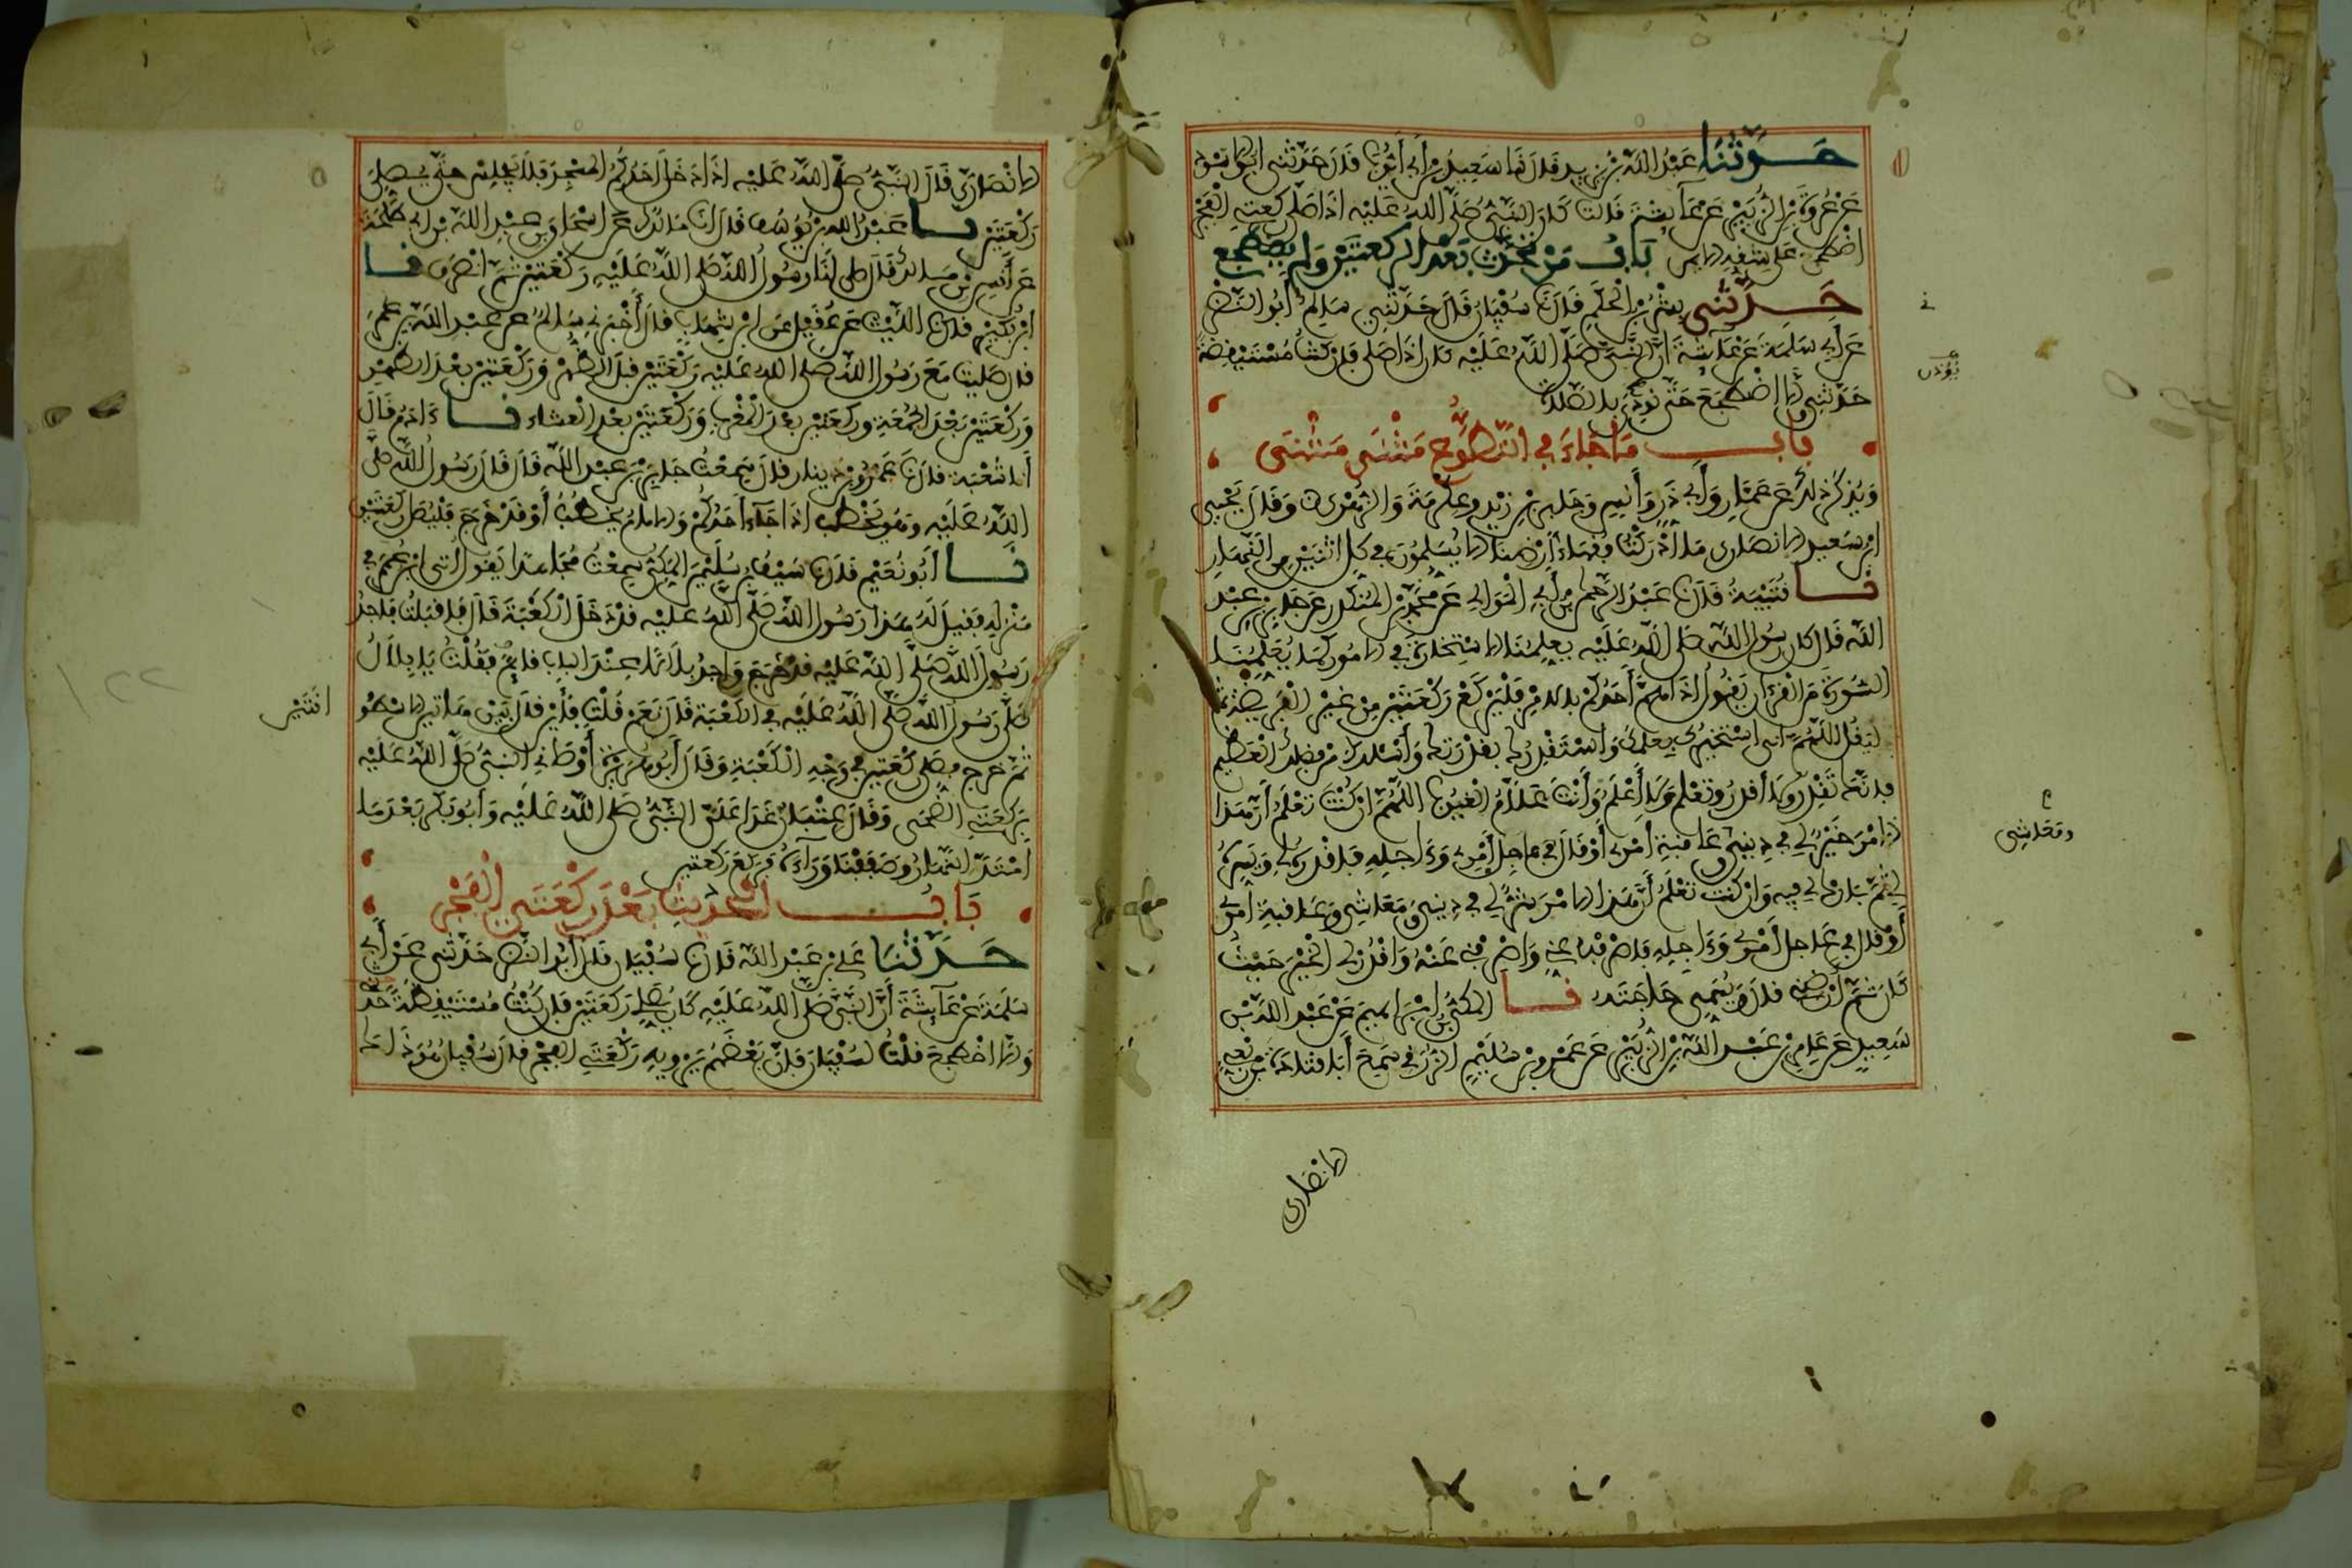 حَدَّثَنَا عَبْدُ اللَّهِ بْنُ يزيد قَالَ نَا سَعِيدُ بْنُ أَبِي أَيُّوبَ قَالَ حَدَّثَنِي أَبُو الأسود
عَنْ عُرْوَةَ بْنِ الزُّبَيْرِ عَنْ عَآئِشَةَ قَالَتْ كَانَ النَّبِيُّ صَلَّى اللَّهُ عَلَيْهِ إِذَا صَلَّى رَكْعَتَيِ الْفَجْرِ
اضْطَجَعَ عَلَى شِقِّهِ الأيمن بَابُ مَنْ تَحَدَّثَ بَعْدَ الرَّكْعَتَيْنِ وَلَمْ يَضْطَجِعْ
حَدَّثَنِي بِشْرُ بْنُ الْحَكَمِ قَالَ نَا سُفْيَانُ قَالَ حَدَّثَنِي سَالِمٌ أَبُو النَّضْرِ
عَنْ أَبِي سَلَمَةَ عَنْ عَآئِشَةَ أَنَّ النَّبِيَّ صَلَّى اللَّهُ عَلَيْهِ كان إِذَا صَلَّى فَإِنْ كُنْتُ مُسْتَيْقِظَةً
حَدَّثَنِي وَإِلَّا اضْطَجَعَ حَتَّى نُوذِنَ بالصلاة
بَابُ مَا جَاءَ فِي التَّطَوُّعِ مَثْنَى مَثْنَى
وَيُذْكَرُ ذَلِكَ عَنْ عَمَّارٍ وَأَبِي ذَرٍّ وَأَنَسٍ وَجَابِرِ بْنِ زَيْدٍ وعكرمة وَالزُّهْرِيِّ وَقَالَ يَحْيَى
ابْنُ سَعِيدٍ الأنصاري مَا أَدْرَكْتُ فُقَهَاءَ أَرْضِنَا إلا يُسَلِّمُونَ فِي كل اثْنَيْنِ مِنَ النَّهَارِ
نا قُتَيْبَةُ قَالَ نَا عَبْدُ الرَّحْمَنِ بْنُ أَبِي الْمَوَالِي عَنْ مُحَمَّدِ بْنِ الْمُنْكَدِرِ عَنْ جَابِرِ بْنِ عَبْدِ
اللَّهِ قَالَ كَانَ رَسُولُ اللَّهِ صَلَّى اللَّهُ عَلَيْهِ يعلمنا الاسْتِخَارَةَ فِي الأمور كَمَا يُعَلِّمُنَا
السُّورَةَ مِنَ الْقُرْآنِ يَقُولُ إِذَا هَمَّ أَحَدُكُمْ بالأمر فَلْيَرْكَعْ رَكْعَتَيْنِ مِنْ غَيْرِ الْفَرِيضَةِ ثم
لِيَقُلِ اللَّهُمَّ إني أَسْتَخِيرُكَ بِعِلْمِكَ وَأَسْتَقْدِرُكَ بقدرتك وَأَسْأَلُكَ من فضلك الْعَظِيمِ
فإنك تَقْدِرُ ولا أقدر وتعلم ولا أَعْلَمُ وَأَنْتَ عَلَّامُ الْغُيُوبِ اللَّهُمَّ إن كُنْتَ تَعْلَمُ أَنَّ هذا
الأمر خَيْرٌ لِي فِي دِينِي وعاقبة أمري أَوْ قَالَ فِي عاجل أَمْرِي وَءَاجِلِهِ فاقدره لِي وَيَسِّرْهُ
لِي ثُمَّ بَارِكْ لي فيه وَإِنْ كُنْتَ تَعْلَمُ أَنَّ هَذَا الأمر شَرٌّ لِي فِي دِينِي وَمَعَاشِي وَعَاقِبَةِ أمري
أَوْ قال في عَاجِلِ أَمْرِي وَءَاجِلِهِ فاصرفه عني وَاصْرِفْنِي عَنْهُ وَاقْدُرْ لِي الْخَيْرَ حَيْثُ
كَانَ ثُمَّ أَرْضِنِي قال وَيُسَمِّي حَاجَتَهُ نا المكي بن إبراهيم عَنْ عَبْدِ اللَّهِ بْنِ
سَعِيدٍ عَنْ عَامِرِ بْنِ عَبْدِ اللَّهِ بْنِ الزُّبَيْرِ عَنْ عَمْرِو بْنِ سُلَيْمٍ الزُّرَقِيِّ سَمِعَ أَبَا قَتَادَةَ بْنَ رِبْعِيٍّ
الأنصاري
يُؤذن
ومعاشي
الأَنْصَارِيَّ قَالَ النَّبِيُّ صَلَّى اللَّهُ عَلَيْهِ إِذَا دَخَلَ أَحَدُكُمُ المسجد فَلَا يَجْلِسْ حَتَّى يصلي
رَكْعَتَيْنِ نا عَبْدُ اللَّهِ بْنُ يُوسُفَ قَالَ أنا مَالِكٌ عَنْ إِسْحَاقَ بن عَبْدِ اللَّهِ بْنِ أبي طَلْحَةَ
عَنْ أَنَسِ بْنِ مالك قَالَ صلى لَنَا رَسُولُ اللَّهِ صَلَّى اللَّهُ عَلَيْهِ رَكْعَتَيْنِ ثُمَّ انْصَرَفَ نا
ابْنُ بُكَيْرٍ قال نا اللَّيْثُ عَنْ عُقَيْلٍ عَنِ ابْنِ شِهَابٍ قَالَ أَخْبَرَنِي سَالِمٌ عَنْ عَبْدِ اللَّهِ بْنِ عُمَرَ
قال صَلَّيْتُ مَعَ رَسُولِ اللَّهِ صَلَّى اللَّهُ عَلَيْهِ رَكْعَتَيْنِ قَبْلَ الظُّهْرِ وَرَكْعَتَيْنِ بَعْدَ الظُّهْرِ
وَرَكْعَتَيْنِ بَعْدَ الْجُمُعَةِ وَرَكْعَتَيْنِ بَعْدَ الْمَغْرِبِ وَرَكْعَتَيْنِ بَعْدَ الْعِشَاءِ نا ءَادَمُ قَالَ
أنا شُعْبَةُ قال نا عَمْرُو بْنُ دِينَارٍ قَالَ سَمِعْتُ جَابِرَ بْنَ عَبْدِ اللَّهِ قَالَ قَالَ رَسُولُ اللَّهِ صَلَّى
اللَّهُ عَلَيْهِ وَهُوَ يَخْطُبُ إِذَا جَاءَ أَحَدُكُمْ وَالإمام يَخْطُبُ أَوْ قَدْ خَرَجَ فَلْيُصَلِّ رَكْعَتَيْنِ
نا أَبُو نُعَيْمٍ قَالَ نا سَيْفُ بْنُ سُلَيْمَنَ الْمَكِّيُّ سَمِعْتُ مُجَاهِدًا يَقُولُ أُتِيَ ابْنُ عُمَرَ فِي
مَنْزِلِهِ فَقِيلَ لَهُ هَذَا رَسُولُ اللَّهِ صَلَّى اللَّهُ عَلَيْهِ قَدْ دَخَلَ الْكَعْبَةَ قَالَ فَأَقْبَلْتُ فَأَجِدُ
رَسُولَ اللَّهِ صَلَّى اللَّهُ عَلَيْهِ قَدْ خَرَجَ وَأَجِدُ بِلَالًا عِنْدَ الباب قائما فَقُلْتُ يَا بِلَالُ
صَلَّى رَسُولُ اللَّهِ صَلَّى اللَّهُ عَلَيْهِ فِي الْكَعْبَةِ قَالَ نَعَمْ قُلْتُ فَأَيْنَ قَالَ بَيْنَ هَاتَيْنِ الأُسْطُوَ
ثُمَّ خرج فَصَلَّى رَكْعَتَيْنِ فِي وَجْهِ الْكَعْبَةِ وَقَالَ أَبُو هُرَيْرَةَ أَوْصَانِي النَّبِيُّ صَلَّى اللَّهُ عَلَيْهِ
بِرَكْعَتَيِ الضُّحَى وَقَالَ عِتْبَانُ غَدَا عَلَيَّ النَّبِيُّ صَلَّى اللَّهُ عَلَيْهِ وَأَبُو بَكْرٍ بَعْدَ مَا
امْتَدَّ النَّهَارُ وَصَفَفْنَا وَرَاءَهُ فَرَكَعَ رَكْعَتَيْنِ
بَابُ الْحَدِيثِ بَعْدَ رَكْعَتَيِ الْفَجْرِ
حَدَّثَنَا عَلِيُّ بْنُ عَبْدِ اللَّهِ قَالَ نا سُفْيَانُ قَالَ أَبُو النَّضْرِ حَدَّثَنِي عَنْ أَبِي
سَلَمَةَ عَنْ عَآئِشَةَ أَنَّ النَّبِيَّ صَلَّى اللَّهُ عَلَيْهِ كَانَ يُصَلِّي رَكْعَتَيْنِ فَإِنْ كُنْتُ مُسْتَيْقِظَةً حَدَّثَنِي
وَإِلَّا اضْطَجَعَ قُلْتُ لِسُفْيَانَ فَإِنَّ بَعْضَهُمْ يَرْوِيهِ رَكْعَتَيِ الْفَجْرِ قَالَ سُفْيَانُ هُوَ ذَاكَ
١٢٢